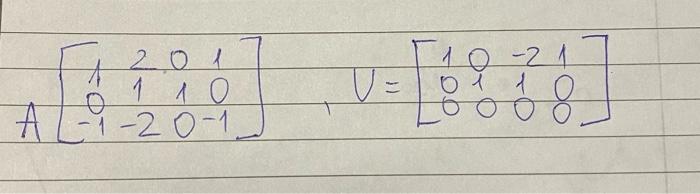 A [ 1 2 0 1
0 1 1 0
-1 -2 0 -1 ] , U = [ 1 0 -2 1
0 1 1 0
0 0 0 0 ]